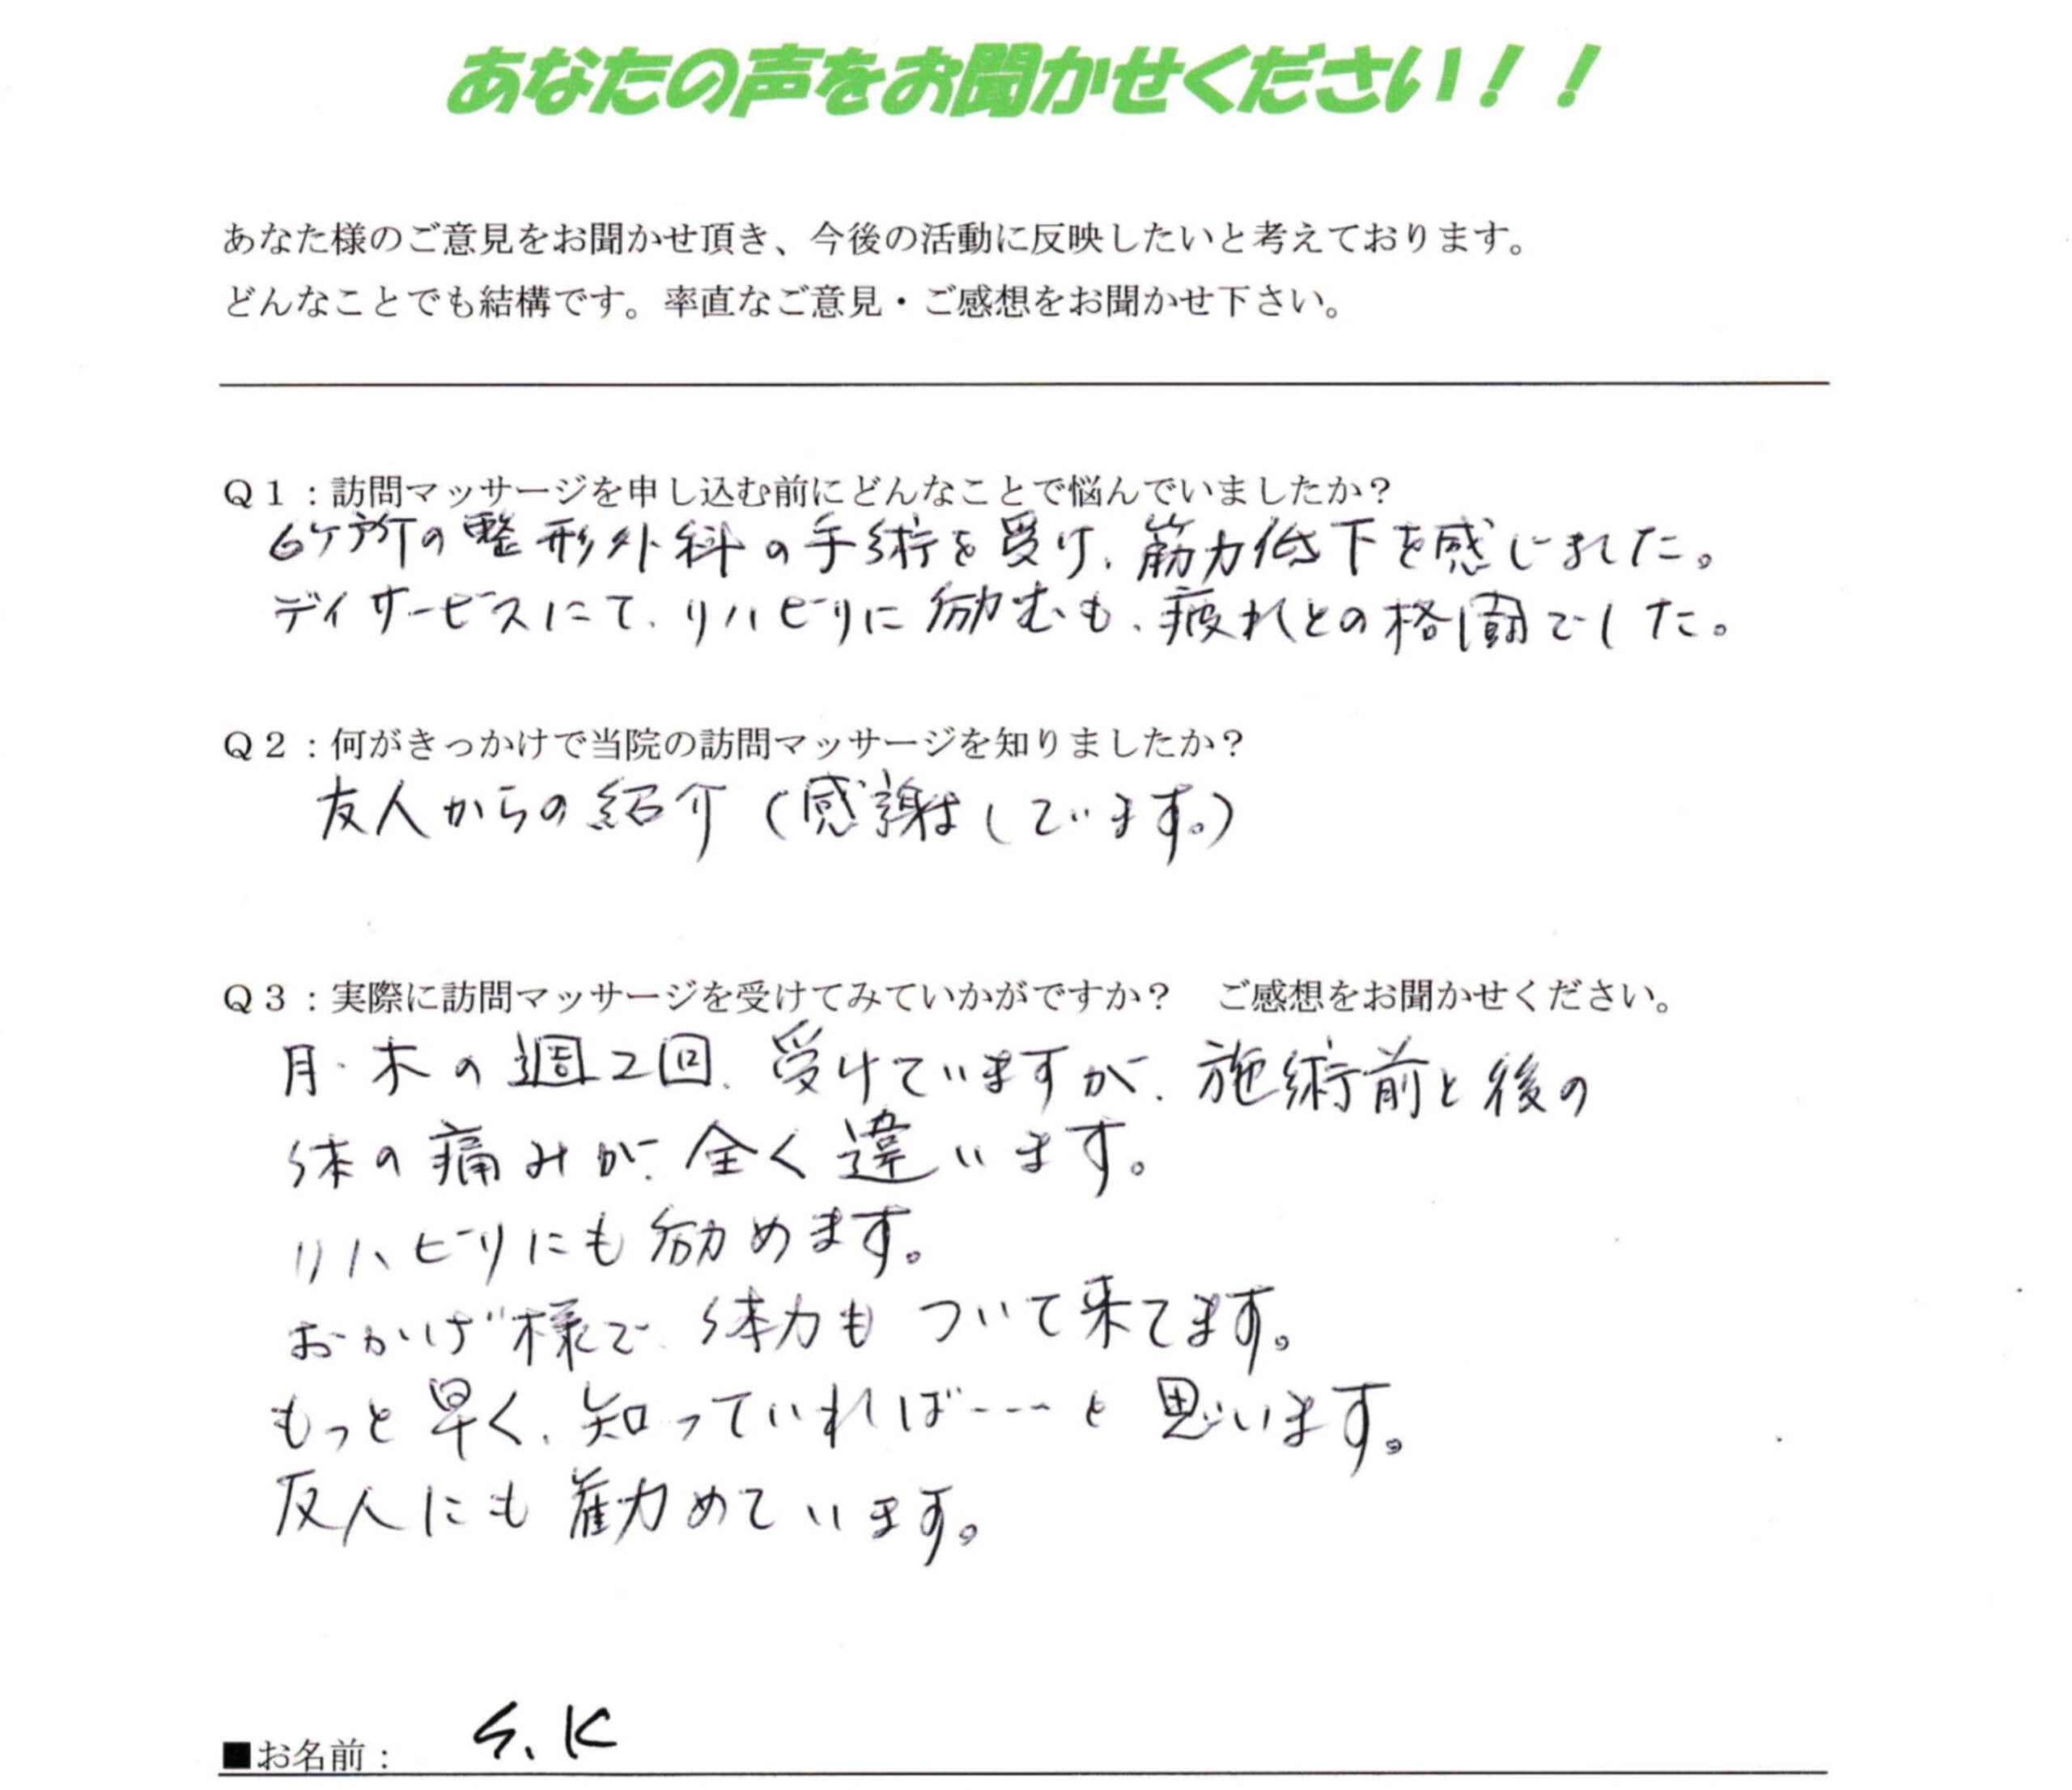 あなたの声をお聞かせください！！
あなた様のご意見をお聞かせ頂き、今後の活動に反映したいと考えております。
どんなことでも結構です。率直なご意見・ご感想をお聞かせ下さい。
Ｑ１：訪問マッサージを申し込む前にどんなことで悩んでいましたか？
6ケ所の整形外科の手術を受け、筋力低下を感じました。
デイサービスにて、リハビリに励むも、疲れとの格闘でした。
Ｑ２：何がきっかけで当院の訪問マッサージを知りましたか？
友人からの紹介（感謝しています。）
Ｑ３：実際に訪問マッサージを受けてみていかがですか？　ご感想をお聞かせください。
月・木の週2回、受けていますが、施術前と後の
体の痛みが、全く違います。
リハビリにも励めます。
おかげ様で、体力もついて来てます。
もっと早く、知っていれば---と思います。
友人にも勧めています。
■お名前：　S.K